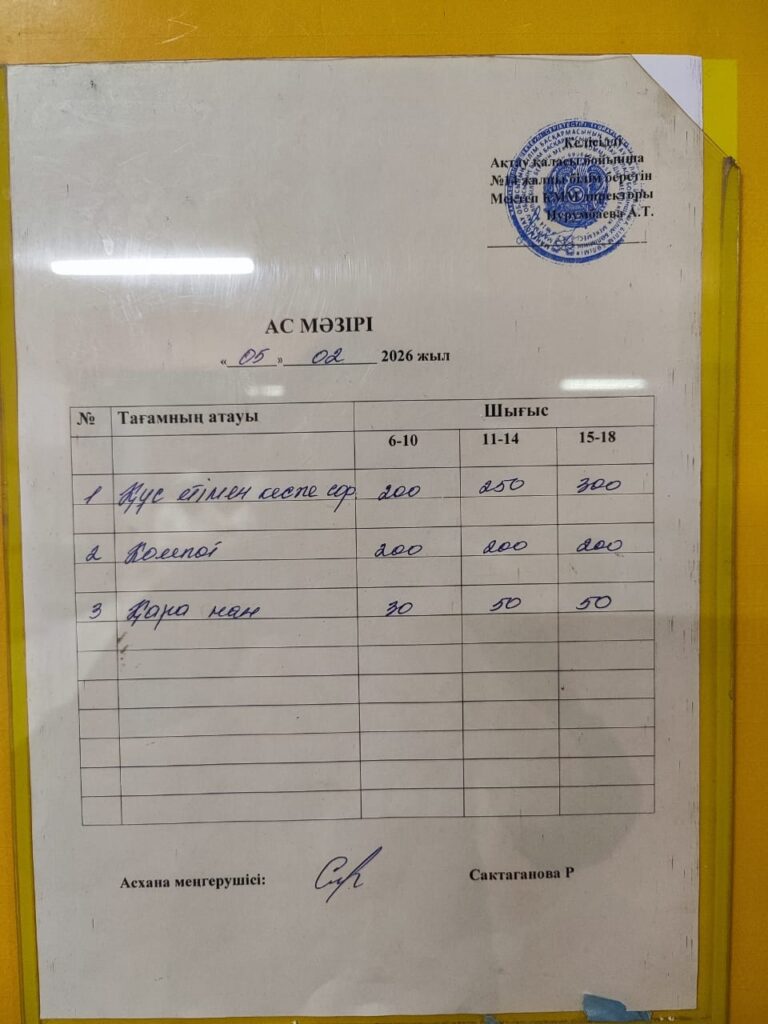 Келісілді
Ақтау қаласы бойынша
№14 жалпы білім беретін
Мектеп КММ директоры
Нурумбаева А.Т.
АС МӘЗІРІ
« 05 » 02 2026 жыл
№ Тағамның атауы Шығыс
6-10 11-14 15-18
1 Құс етімен кеспе сор 200 250 300
2 Компот 200 200 200
3 Қара нан 30 50 50
Асхана меңгерушісі: Сактаганова Р